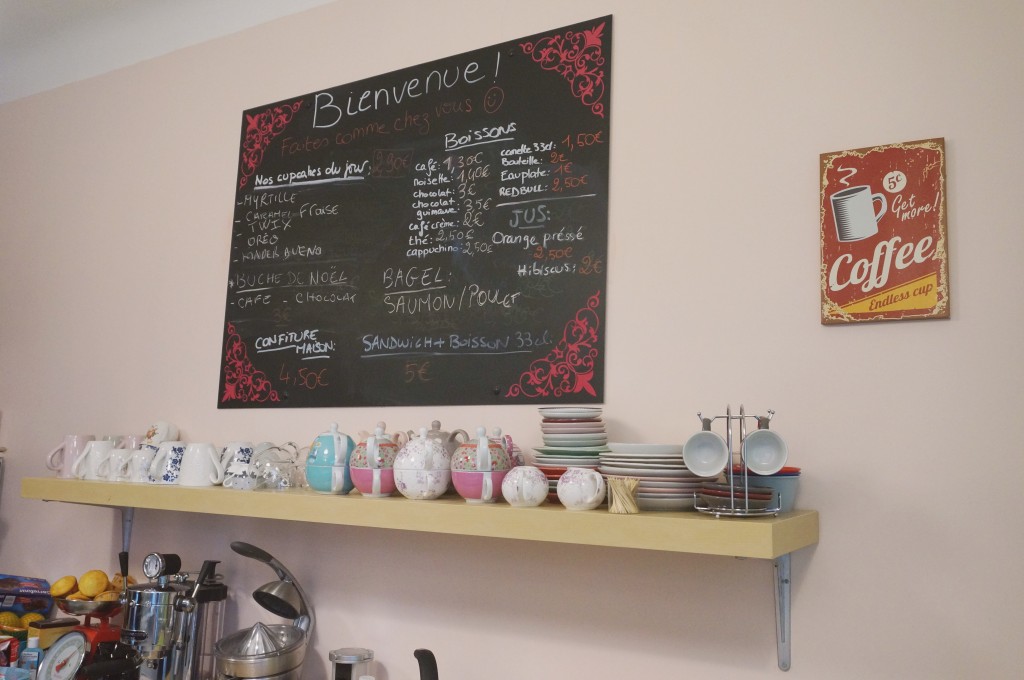 Bienvenue !
Faites comme chez vous
Nos cupcakes du jour: 2,20€
- MYRTILLE
- CARAMEL - Fraise
- TWIX
- ORÉO
- KINDER BUENO
BUCHE DE NOËL
- CAFÉ - CHOCOLAT
3€
CONFITURE
MAISON:
4,50€
Boissons
café: 1,30€
noisette: 1,40€
chocolat: 3€
chocolat
guimauve: 3,5€
café crème: 2€
thé: 2,50€
cappuchino: 2,50€
canette 33cl: 1,50€
Bouteille: 2€
Eau plate: 1€
REDBULL: 2,50€
JUS:
Orange préssé
2,50€
Hibiscus: 2€
BAGEL:
SAUMON/POULET
SANDWICH + BOISSON 33cl.
5€
5¢
Get
more!
Coffee
Endless cup